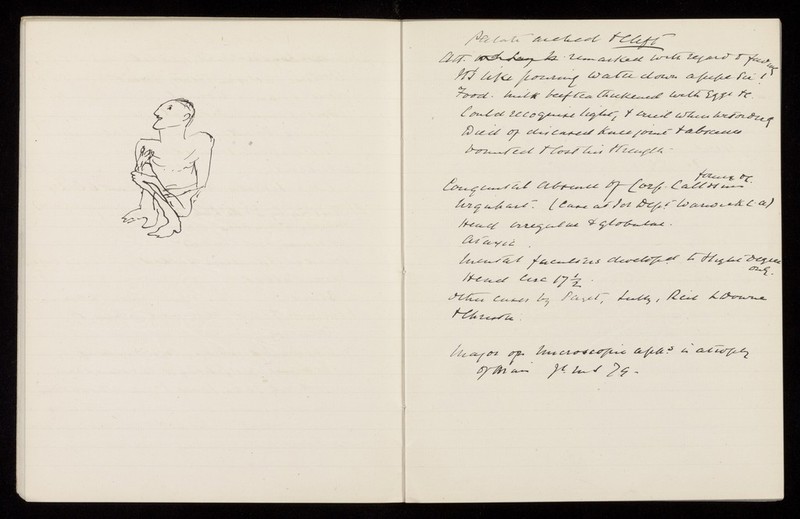 Palate arched & Cleft
Att. remarked with regard to feeding
It's like pouring water down a pipe Sir!
Food. Milk beef tea thickened with Eggs &c.
Could recognise light, & cried when
Died of diseased Knee joint & abscesses
Vomited & lost his strength.
Congenital Absence of Corp. Callosum Fornix &c.
Urquhart. (Case at Idiot Dept Warwick C A)
Head irregular & globular.
Ataxic
Mental faculties developed to slight Degree only.
Head Circ 17 1/2.
Other cases by Paget, Jolly, Reil L Down
& Christie.
Major on Microscopic app.s in atrophy
of Brain Jl. M S 79.